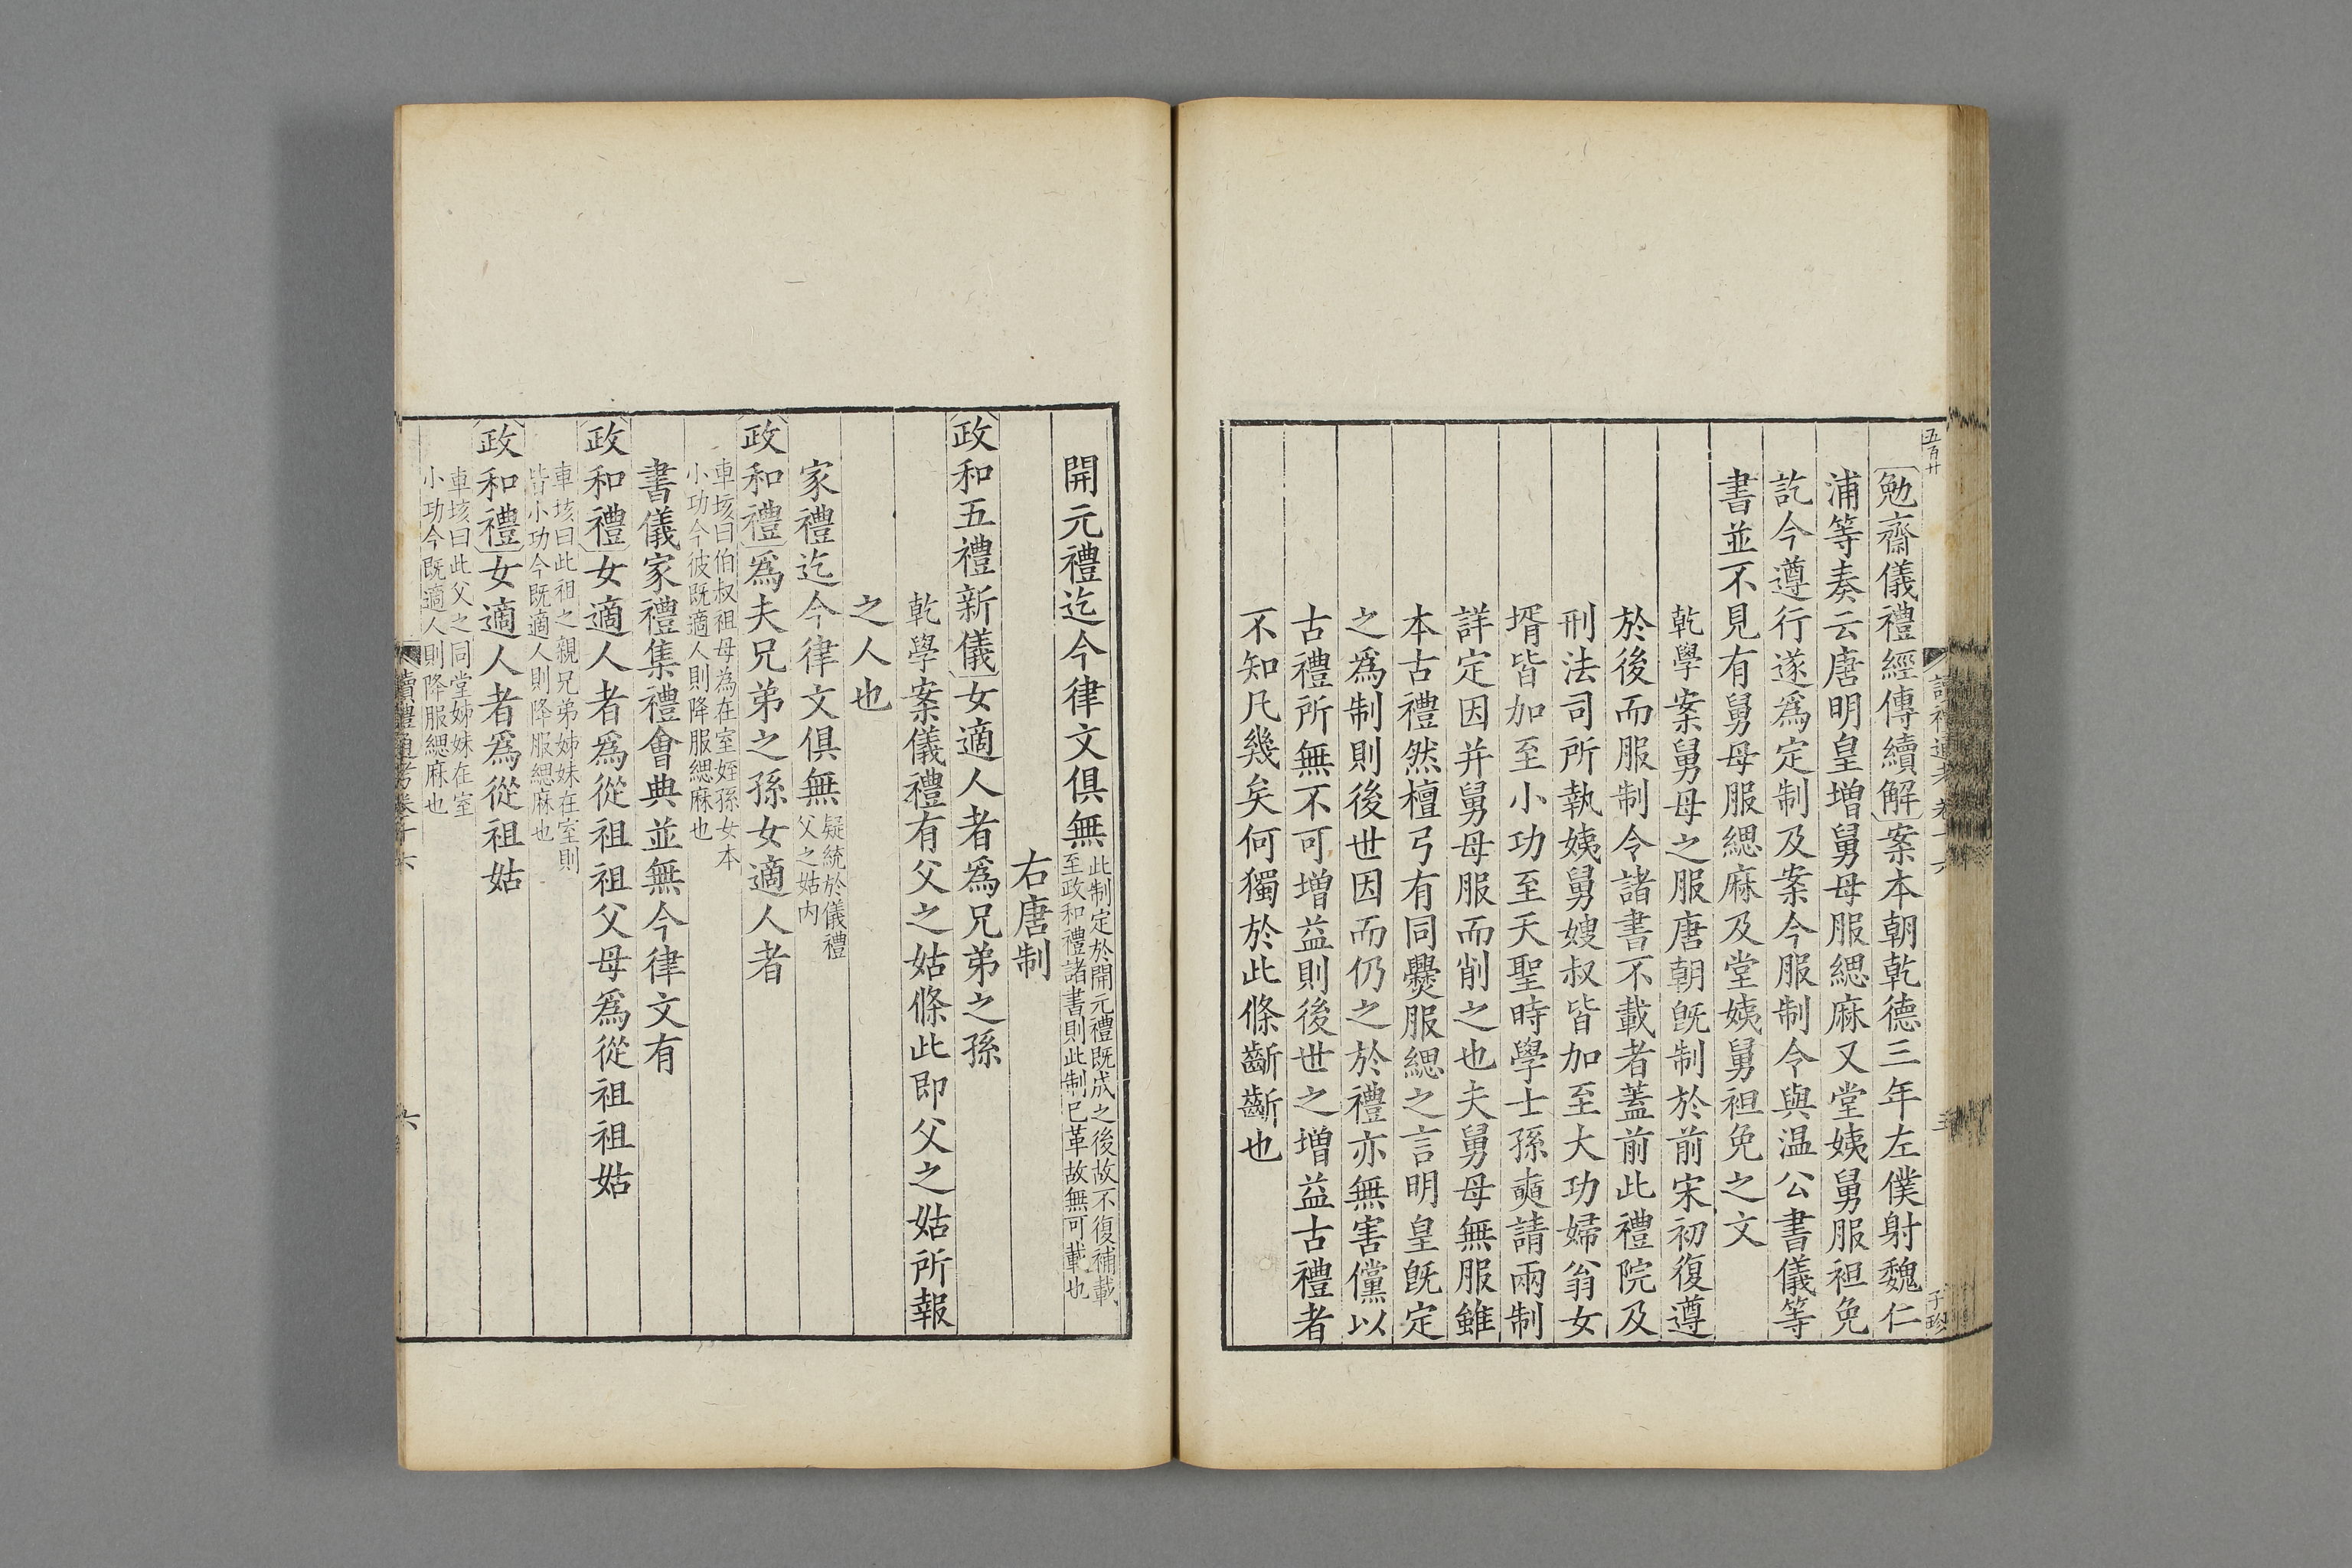 五百廿
勉齋儀禮經傳續解案本朝乾德三年左僕射魏仁
浦等奏云唐明皇增舅母服緦麻又堂姨舅服袒免
訖今遵行遂爲定制及案今服制令與温公書儀等
書並不見有舅母服緦麻及堂姨舅袒免之文
乾學案舅母之服唐朝旣制於前宋初復遵
於後而服制令諸書不載者蓋前此禮院及
刑法司所執姨舅嫂叔皆加至大功婦翁女
壻皆加至小功至天聖時學士孫奭請兩制
詳定因并舅母服而削之也夫舅母無服雖
本古禮然檀弓有同爨服緦之言明皇旣定
之爲制則後世因而仍之於禮亦無害儻以
古禮所無不可增益則後世之增益古禮者
不知凡幾矣何獨於此條齗齗也
開元禮迄今律文俱無此制定於開元禮既成之後故不復補載
至政和禮諸書則此制已革故無可載也
右唐制
政和五禮新儀女適人者爲兄弟之孫
乾學案儀禮有父之姑條此即父之姑所報
之人也
家禮迄今律文俱無疑統於儀禮
父之姑内
政和禮爲夫兄弟之孫女適人者
車垓曰伯叔祖母為在室姪孫女本
小功今彼既適人則降服緦麻也
書儀家禮集禮會典並無今律文有
政和禮女適人者爲從祖祖父母爲從祖祖姑
車垓曰此祖之親兄弟姊妹在室則
皆小功今既適人則降服緦麻也
政和禮女適人者爲從祖姑
車垓曰此父之同堂姊妹在室
小功今既適人則降服緦麻也
讀禮通考卷十六
六